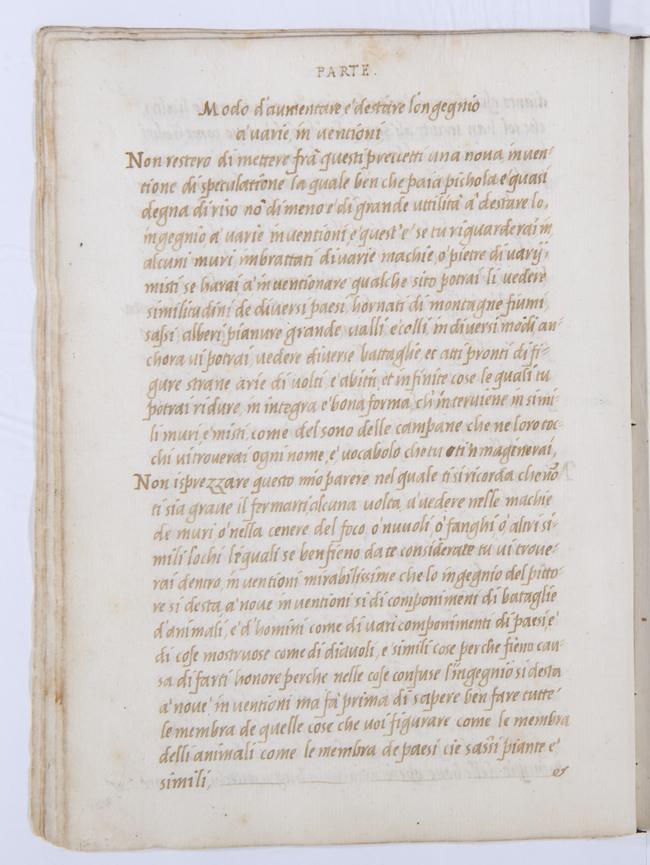 PARTE.
Modo d'aumentare, e destare longegnio
a varie, in ventioni
Non restero di mettere fra questi precetti una nova inven-
tione di speculattione la quale ben che paia pichola e quasi
degna di riso no di meno e di grande uttilita a destare lo,
ingegnio a varie inventioni, e quest'e se tu riguarderai in
alcuni muri imbrattati di varie machie, o pietre di varij,
misti se harai a inventionare qualche sito potrai li vedere
similitudini de diversi paesi, hornati di montagne fiumi,
sassi, alberi, pianure grande valli e colli, in diversi modi, an-
chora vi potrai, vedere diverse battaglie et atti pronti di fi-
gure strane arie di volti, e abitti, et infinite cose le quali tu
potrai ridure, in integra e bona forma, ch'interviene in simi
li muri, e misti, come del sono delle campane che ne loro toc-
chi vi troverai ogni nome, e vocabolo che tu ti imaginerai,
Non isprezzare questo mio parere nel quale ti si ricorda che nō
ti sia grave il fermarti, alcuna volta, a vedere nelle machie
de muri o nella cenere del foco, o nuvoli, o fanghi, o altri si-
mili lochi li quali se ben fieno da te considerate tu, vi trove-
rai dentro, inventioni mirabilissime che lo ingegnio del pitto-
re si desta, a nove inventioni si di componimenti di bataglie
d'animali, e d'homini come di vari componimenti di paesi, e
di cose mostruose come di diavoli, e simili cose perche fieno cau-
sa di farti honore perche nelle cose confuse l'ingegnio si desta
a nove inventioni ma fa prima di sapere ben fare tutte
le membra de quelle cose che voi figurare come le membra
delli animali come le membra de paesi cie sassi piante e
simili,